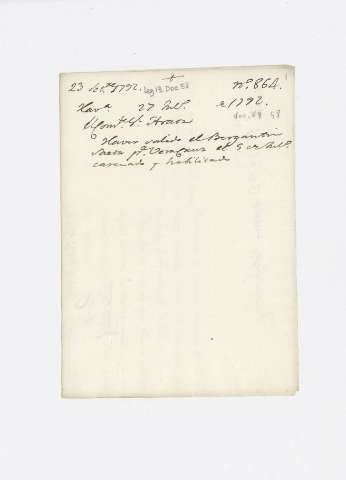 23 Sept.e 1792. Leg 13 Doc 58 nº 864.
Hav.a 27 Jul.º de 1792.
doc. 58 58
El Com.te G.l Araoz
Haver salido el Bergantin
Saeta p.a Veracruz el 5 de Jul.º
carenado y habilitado